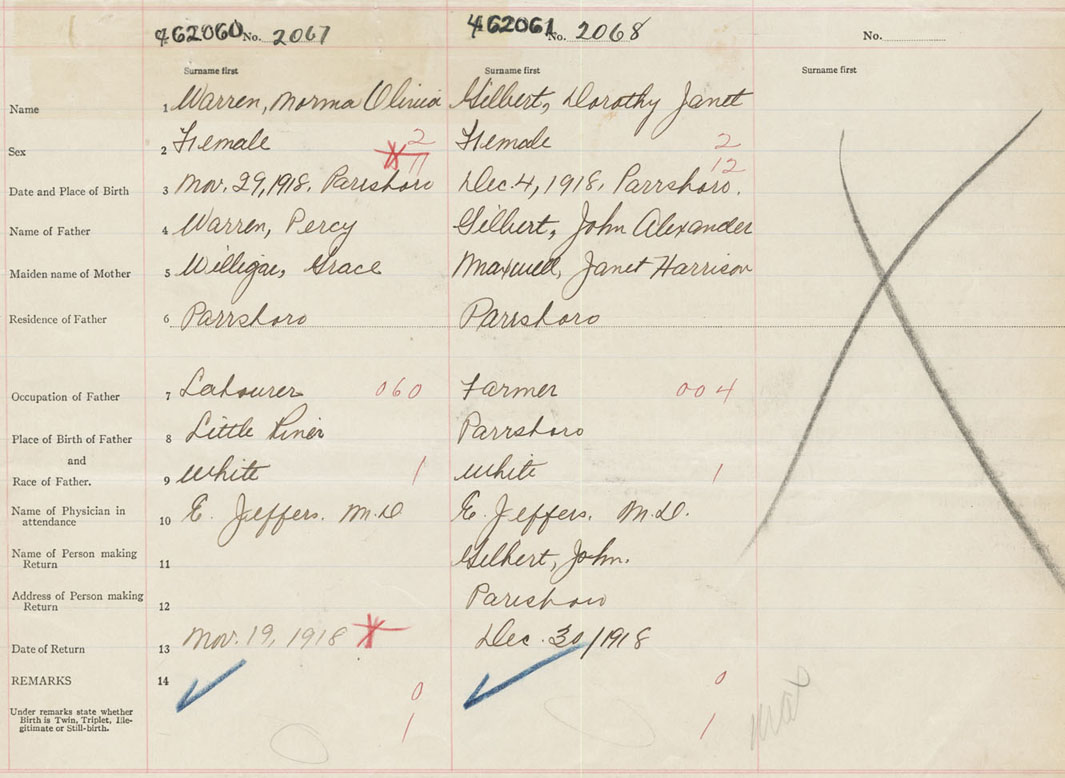 462060 No. 2067 462061 No. 2068 No.
Surname first Surname first Surname first
Name 1 Warren, Norma Olivia Gilbert, Dorothy Janet
Sex 2 Female 2 Female 2
11 12
Date and Place of Birth 3 Nov. 29, 1918. Parrsboro Dec. 4, 1918. Parrsboro.
Name of Father 4 Warren, Percy Gilbert, John Alexander
Maiden name of Mother 5 Willigar, Grace Maxwell, Janet Harrison
Residence of Father 6 Parrsboro Parrsboro
Occupation of Father 7 Labourer 060 Farmer 004
Place of Birth of Father 8 Little River Parrsboro
and
Race of Father. 9 White 1 White 1
Name of Physician in
attendance 10 E. Jeffers. M.D E. Jeffers. M.D.
Name of Person making
Return 11 Gilbert, John.
Address of Person making
Return 12 Parrsboro
Date of Return 13 Nov. 19, 1918 Dec. 30/1918
REMARKS 14 0 0
Under remarks state whether
Birth is Twin, Triplet, Ille-
gitimate or Still-birth. 1 1